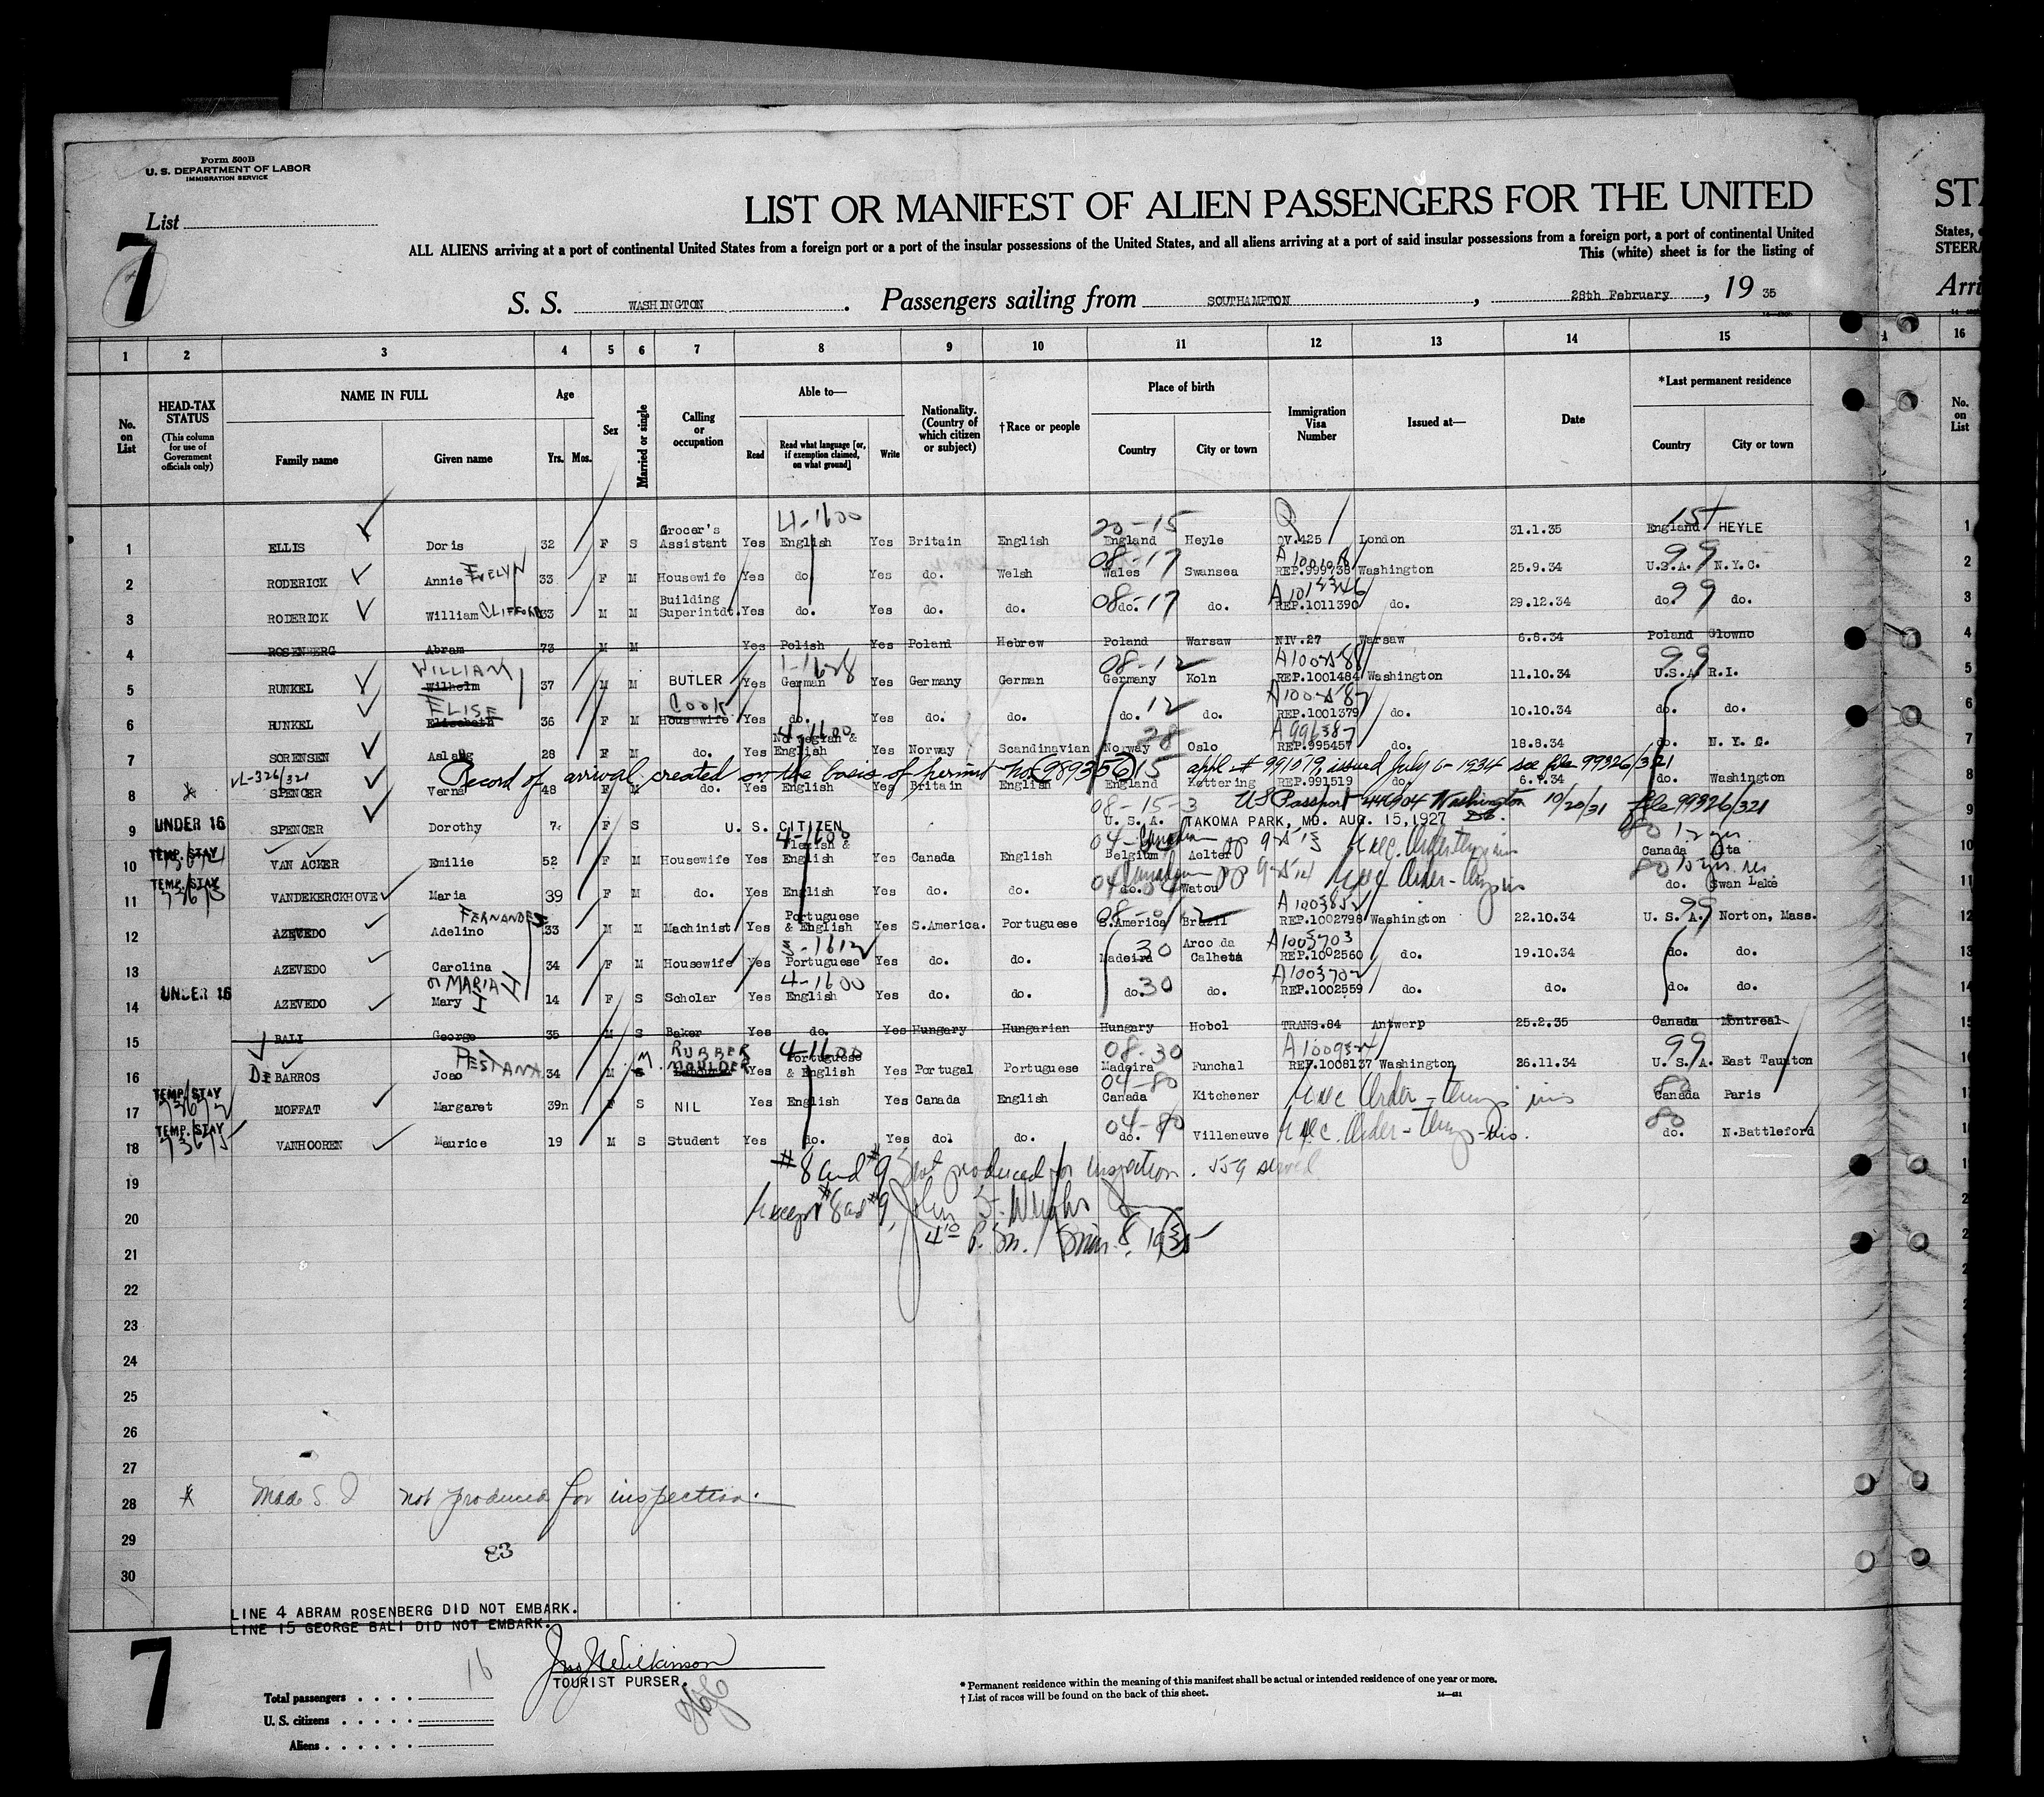 Form 500B
U. S. DEPARTMENT OF LABOR
IMMIGRATION SERVICE
List
7
LIST OR MANIFEST OF ALIEN PASSENGERS FOR THE UNITED
STA
ALL ALIENS arriving at a port of continental United States from a foreign port or a port of the insular possessions of the United States, and all aliens arriving at a port of said insular possessions from a foreign port, a port of continental United
States,
This (white) sheet is for the listing of
STEERA
S. S. WASHINGTON. Passengers sailing from SOUTHAMPTON, 28th February, 19 35
Arri
1 2 3 4 5 6 7 8 9 10 11 12 13 14 15 16
No. on List
HEAD-TAX STATUS (This column for use of Government officials only)
NAME IN FULL
Family name Given name
Age
Yrs. Mos.
Sex
Married or single
Calling or occupation
Able to—
Read Read what language [or, if exemption claimed, on what ground] Write
Nationality. (Country of which citizen or subject)
†Race or people
Place of birth
Country City or town
Immigration Visa Number
Issued at—
Date
*Last permanent residence
Country City or town
No. on List
4-1600 20-15 Q 15
1 ELLIS Doris 32 F S Grocer's Assistant Yes English Yes Britain English England Heyle QV.425 London 31.1.35 England HEYLE 1
EVELYN 08-17 99
2 RODERICK Annie 33 F M Housewife Yes do. Yes do. Welsh Wales Swansea REP.999738 Washington 25.9.34 U.S.A. N.Y.C. 2
CLIFFORD 08-17 99
3 RODERICK William 33 M M Building Superintdt. Yes do. Yes do. do. do. do. REP.1011390 do. 29.12.34 do. do. 3
4 ROSENBERG Abram 73 M M Yes Polish Yes Poland Hebrew Poland Warsaw NIV.27 Warsaw 6.8.34 Poland Glowno 4
WILLIAM 1-1628 08-12 99
5 RUNKEL Wilhelm 37 M M BUTLER Yes German Yes Germany German Germany Koln REP.1001484 Washington 11.10.34 U.S.A. R.I. 5
ELISE COOK 12
6 RUNKEL Elisabeth 36 F M Housewife Yes do. Yes do. do. do. do. REP.1001379 do. 10.10.34 do. do. 6
4-1600 28 A996387
7 SORENSEN Aslaug 28 F M do. Yes Norwegian & English Yes Norway Scandinavian Norway Oslo REP.995457 do. 18.8.34 do. N. Y. C. 7
VL-326/321 Record of arrival created on the basis of permit no. 989356 15 appl # 991519, issued July 6 - 1934 see file 99326/321
8 SPENCER Verna 48 F M do. Yes English Yes Britain English England Kettering REP.991519 do. 6.7.34 do. Washington 8
08-15-3 US Passport 446904 Washington 10/20/31 file 99326/321
9 UNDER 16 SPENCER Dorothy 7 F S U. S. CITIZEN U. S. A. TAKOMA PARK, MD. AUG. 15,1927 9
4-1600 04- Canadian 80 12 yrs
10 TEMP. STAY VAN ACKER Emilie 52 F M Housewife Yes Flemish & English Yes Canada English Belgium Aelter Canada Alta 10
04 Canadian 80 10 yrs. res
11 TEMP. STAY VANDEKERCKHOVE Maria 39 F M do. Yes English Yes do. do. do. Watou do. Swan Lake 11
FERNANDES 99
12 AZEVEDO Adelino 33 M M Machinist Yes Portuguese & English Yes S.America. Portuguese S.America Brazil REP.1002798 Washington 22.10.34 U. S. A. Norton, Mass. 12
3-1612 30 A1003703
13 AZEVEDO Carolina 34 F M Housewife Yes Portuguese Yes do. do. Madeira Arco da Calheta REP.1002560 do. 19.10.34 do. do. 13
or MARIA I 4-1600 30 A1003702
14 UNDER 16 AZEVEDO Mary I 14 F S Scholar Yes English Yes do. do. do. do. REP.1002559 do. do. do. do. 14
15 BALI George 35 M S Baker Yes do. Yes Hungary Hungarian Hungary Hobol TRANS.84 Antwerp 25.2.35 Canada Montreal 15
PESTANA M RUBBER MOULDER 4-1600 08-30 99
16 DE BARROS Joao 34 M S Yes Portuguese & English Yes Portugal Portuguese Madeira Funchal REP.1008137 Washington 26.11.34 U. S. A. East Taunton 16
04-80 80
17 TEMP. STAY MOFFAT Margaret 39n F S NIL Yes English Yes Canada English Canada Kitchener Exec Order Canada Paris 17
04-80 80
18 TEMP. STAY VANHOOREN Maurice 19 M S Student Yes do. Yes dol do. do. Villeneuve Exec. Order do. N.Battleford 18
#8 and #9 not produced for inspection. 559 served
19
Except #8 and #9, John
20
4 10 P. M. Mar. 8, 1935
21
22
23
24
25
26
27
28 Made S I not produced for inspection.
29
83
30
LINE 4 ABRAM ROSENBERG DID NOT EMBARK.
LINE 15 GEORGE BALI DID NOT EMBARK.
7
Jno J Wilkinson
TOURIST PURSER.
16
Total passengers . . . .
U. S. citizens . . . . .
Aliens . . . . . .
* Permanent residence within the meaning of this manifest shall be actual or intended residence of one year or more.
† List of races will be found on the back of this sheet.